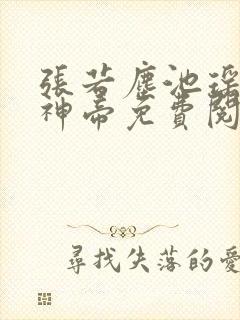 張若塵池瑤
神帝免費閱
尋找失落的愛